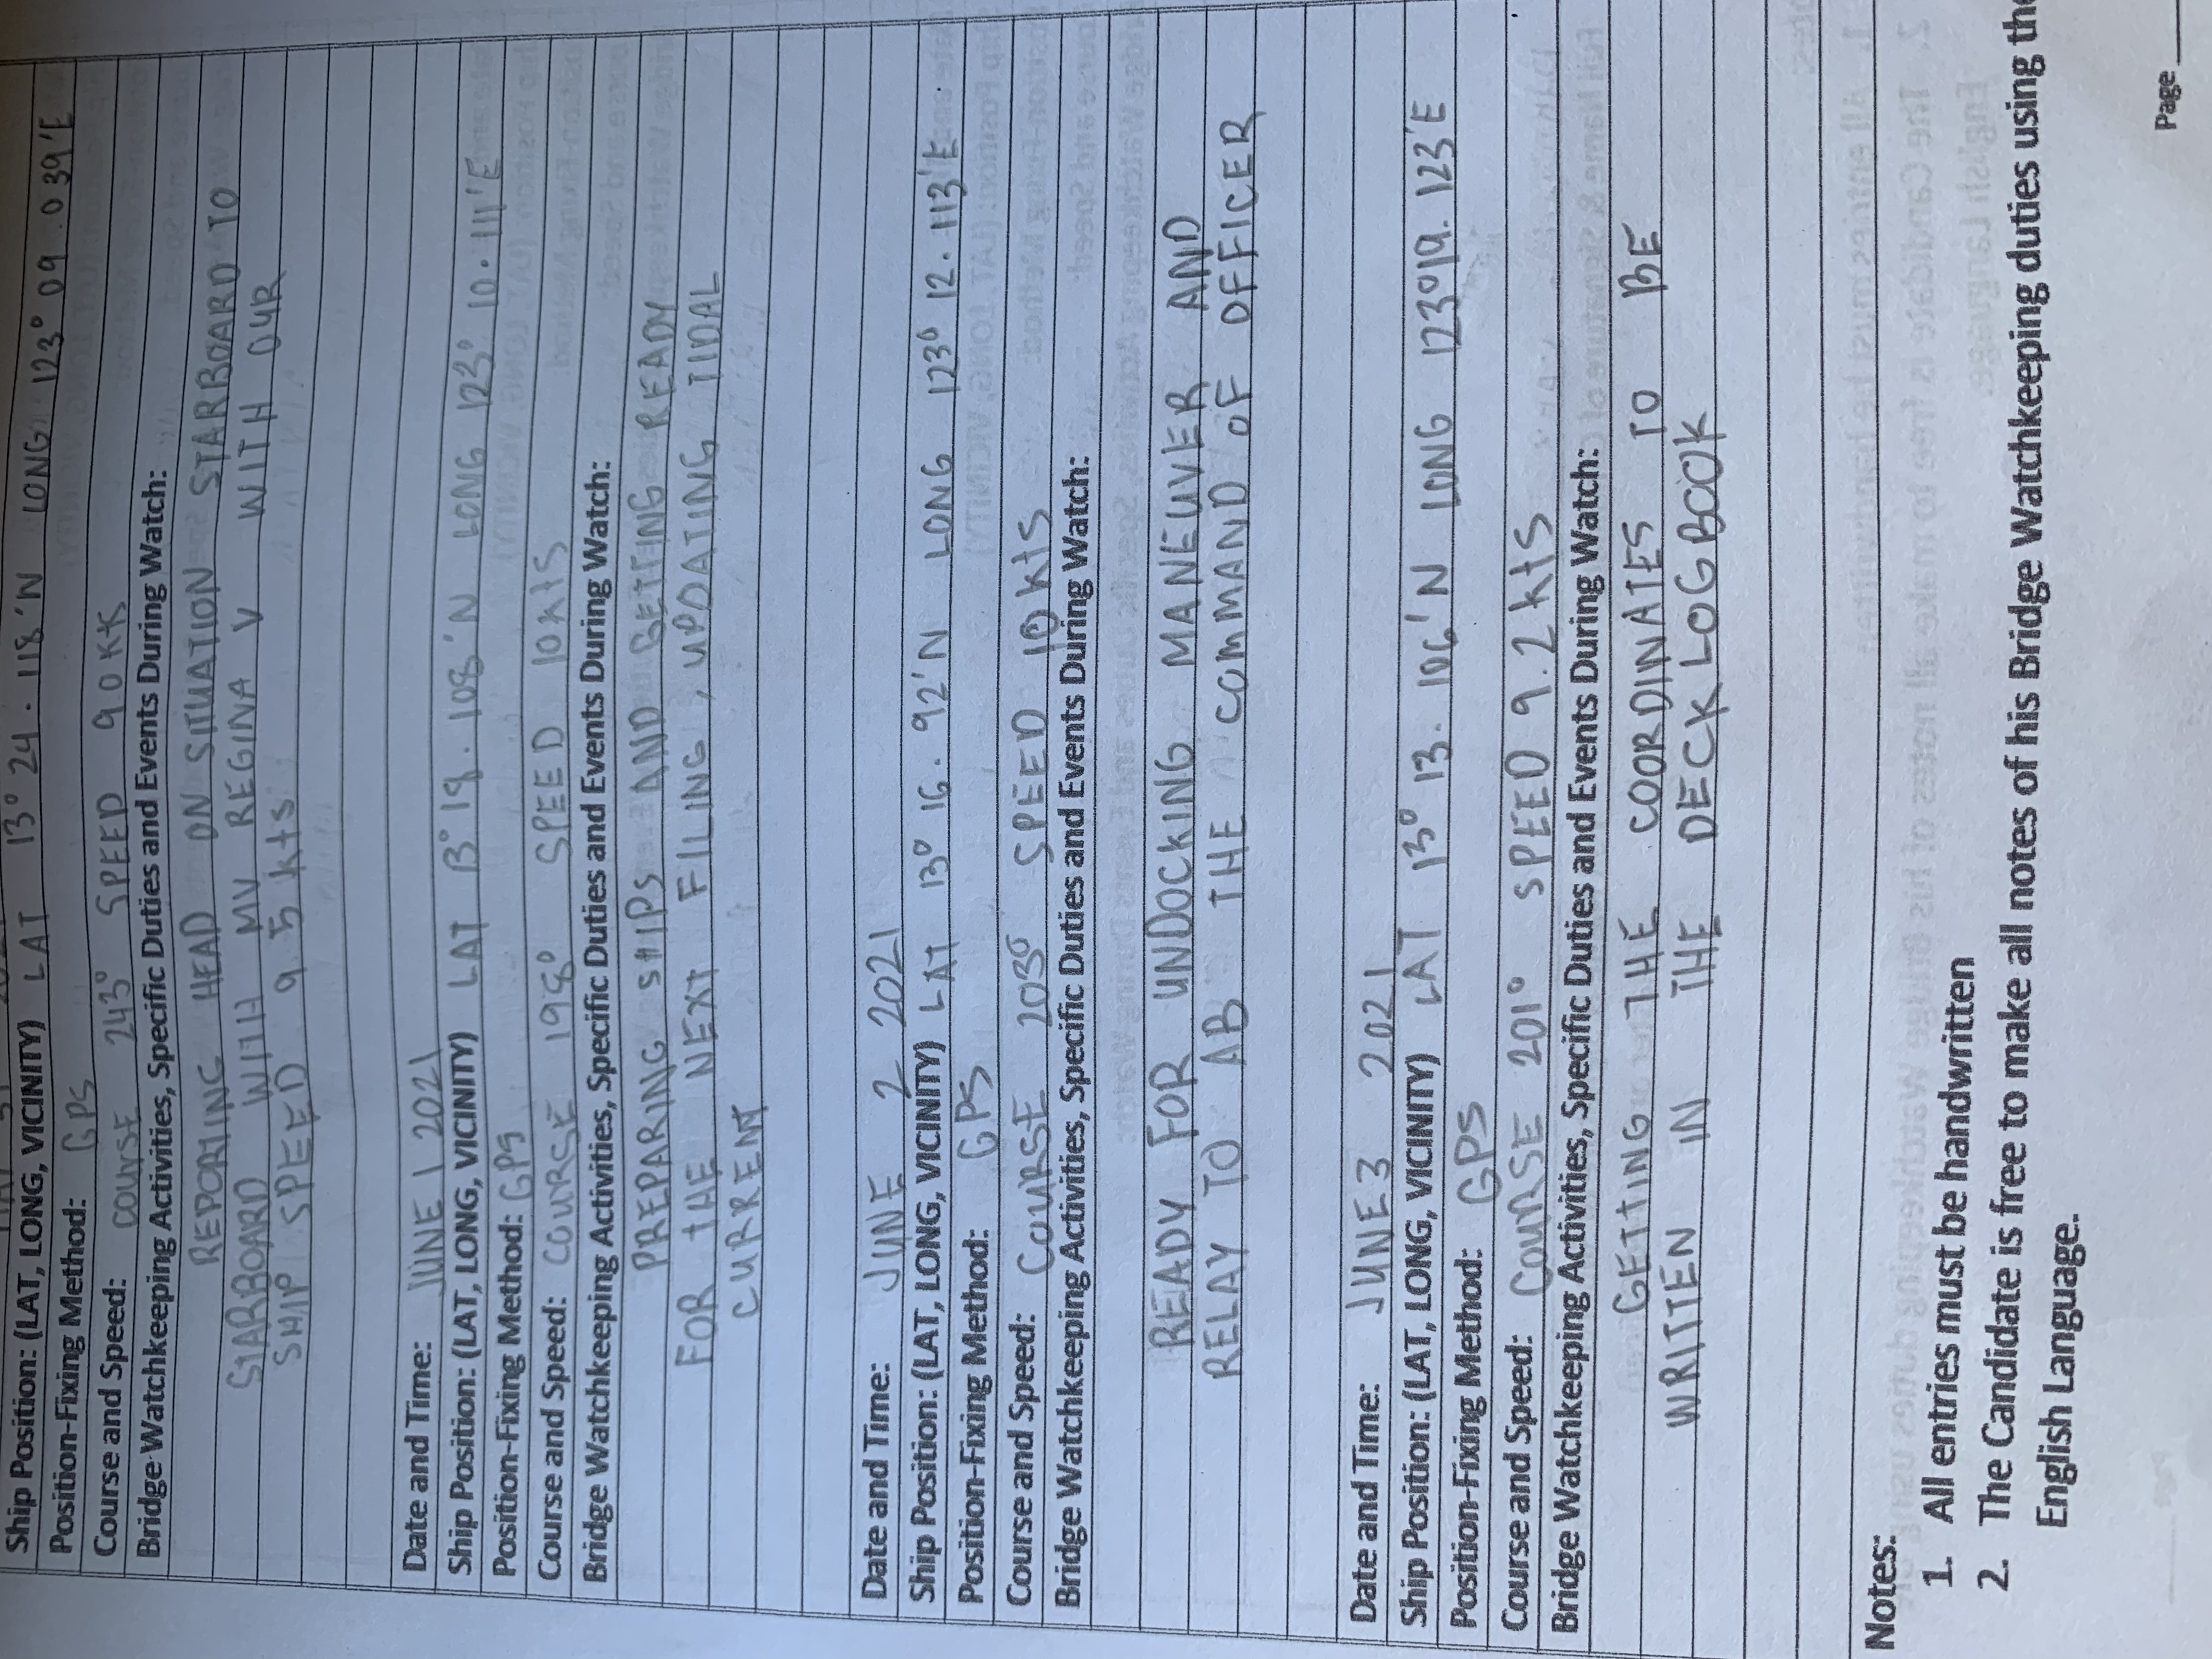 Ship Position: (LAT, LONG, VICINITY) LAT 13° 24 . 118'N LONG 123° 09 . 039'E
Position-Fixing Method: GPS
Course and Speed: COURSE 243° SPEED 9.0 kts
Bridge Watchkeeping Activities, Specific Duties and Events During Watch:
REPORTING HEAD ON SITUATION STARBOARD TO
STARBOARD WITH MV REGINA V WITH OUR
SHIP SPEED 9.5 kts
Date and Time: JUNE 1 2021
Ship Position: (LAT, LONG, VICINITY) LAT 13° 18 . 108'N LONG 123° 10 . 111'E
Position-Fixing Method: GPS
Course and Speed: COURSE 198° SPEED 10 kts
Bridge Watchkeeping Activities, Specific Duties and Events During Watch:
PREPARING SHIPS AND GETTING READY
FOR THE NEXT FILING , UPDATING TIDAL
CURRENT
Date and Time: JUNE 2 2021
Ship Position: (LAT, LONG, VICINITY) LAT 13° 16 . 92'N LONG 123° 12 . 113'E
Position-Fixing Method: GPS
Course and Speed: COURSE 203° SPEED 10 kts
Bridge Watchkeeping Activities, Specific Duties and Events During Watch:
READY FOR UNDOCKING MANEUVER AND
RELAY TO AB THE COMMAND OF OFFICER
Date and Time: JUNE 3 2021
Ship Position: (LAT, LONG, VICINITY) LAT 13° 13 . 106'N LONG 123° 19 . 123'E
Position-Fixing Method: GPS
Course and Speed: COURSE 201° SPEED 9.2 kts
Bridge Watchkeeping Activities, Specific Duties and Events During Watch:
GETTING THE COORDINATES TO BE
WRITTEN IN THE DECK LOGBOOK
Notes:
1. All entries must be handwritten
2. The Candidate is free to make all notes of his Bridge Watchkeeping duties using the
English Language.
Page